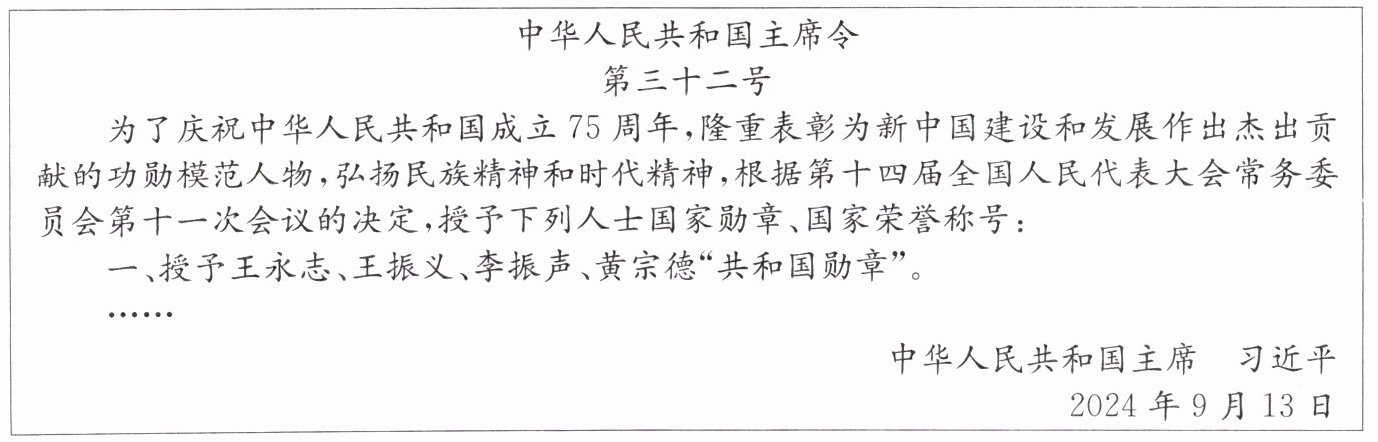 中华人民共和国主席令
第三十二号
为了庆祝中华人民共和国成立75周年,隆重表彰为新中国建设和发展作出杰出贡
献的功勋模范人物,弘扬民族精神和时代精神,根据第十四届全国人民代表大会常务委
员会第十一次会议的决定,授予下列人士国家勋章、国家荣誉称号:
一、授予王永志、王振义、李振声、黄宗德“共和国勋章”。
……
中华人民共和国主席 习近平
2024年9月13日